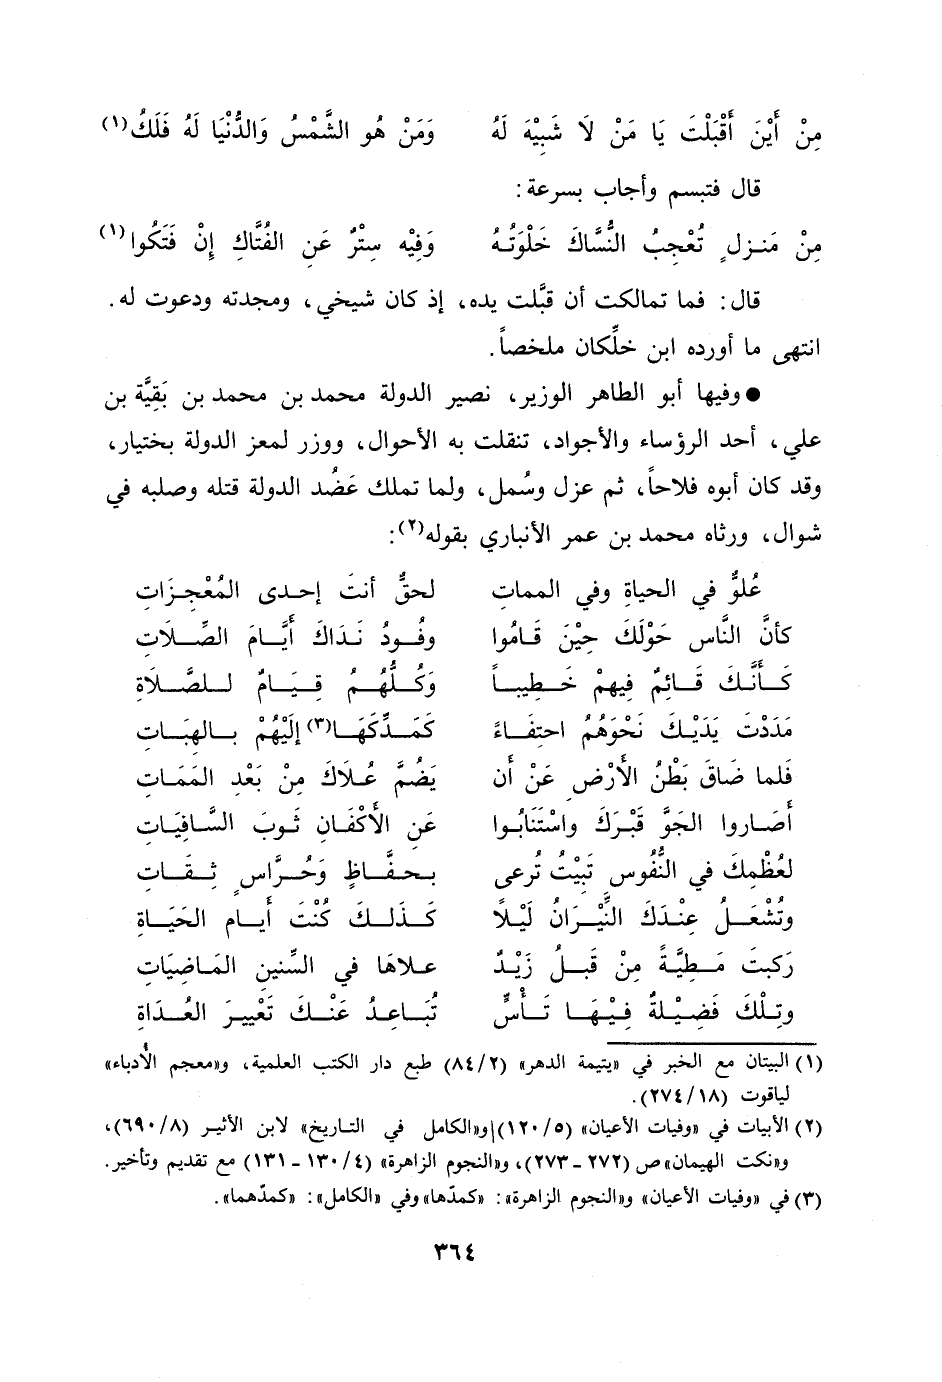 مِنْ أَيْنَ أَقْبَلْتَ يَا مَنْ لَا شَبِيْهَ لَهُ وَمَنْ هُو الشَّمْسُ وَالدُّنْيَا لَهُ فَلَكُ(١)
قال فتبسم وأجاب بسرعة:
مِنْ مَنزلٍ تُعْجِبُ النُّسَّاكَ خَلْوَتُهُ وَفِيْه سِتْرٌ عَنِ الفُتَّاكِ إِنْ فَتَكُوا(١)
قال: فما تمالكت أن قبَّلت يده، إذ كان شيخي، ومجدته ودعوت له.
انتهى ما أورده ابن خلِّكان ملخصاً.
● وفيها أبو الطاهر الوزير، نصير الدولة محمد بن محمد بن بَقِيَّة بن
علي، أحد الرؤساء والأجواد، تنقلت به الأحوال، ووزر لمعز الدولة بختيار،
وقد كان أبوه فلاحاً، ثم عزل وسُمل، ولما تملك عَضُد الدولة قتله وصلبه في
شوال، ورثاه محمد بن عمر الأنباري بقوله(٢):
عُلوٌّ في الحياةِ وفي المماتِ لحقٌّ أنتَ إحدى المُعْجِزَاتِ
كأنَّ النَّاس حَوْلَكَ حِيْنَ قَامُوا وفُودُ نَدَاكَ أَيَّامَ الصِّلَاتِ
كَأَنَّكَ قَائِمٌ فِيهِمْ خَطِيباً وَكُلُّهُم قِيَامٌ لِلصَّلَاةِ
مَدَدْتَ يَدَيْكَ نَحْوَهُم احتِفَاءً كَمَدِّكَهَا(٣) إِلَيْهُمْ بِالهِبَاتِ
فَلما ضَاقَ بَطْنُ الأَرْضِ عَنْ أَن يَضُمَّ عُلَاكَ مِنْ بَعْدِ المَمَاتِ
أَصَاروا الجَوَّ قَبْرَكَ واسْتَنَابُوا عَن الأَكْفَانِ ثَوبَ السَّافِيَاتِ
لعُظْمِكَ في النُّفُوسِ تَبِيْتُ تُرعى بِحفَّاظٍ وَحُرَّاسٍ ثِقَاتِ
وتُشْعَلُ عِنْدَكَ النِّيْرَانُ لَيْلاً كَذَلكَ كُنْتَ أَيام الحَيَاةِ
رَكِبتَ مَطِيَّةً مِنْ قَبلُ زَيْدٌ علاهَا في السِّنين المَاضِيَاتِ
وتِلْكَ فَضِيْلةٌ فِيْهَا تَأسٍّ تُبَاعِدُ عَنْكَ تَعْييرَ العُدَاةِ
(١) البيتان مع الخبر في «يتيمة الدهر» (٨٤/٢) طبع دار الكتب العلمية، و«معجم الأدباء»
لياقوت (٢٧٤/١٨).
(٢) الأبيات في «وفيات الأعيان» (١٢٠/٥) و«الكامل في التاريخ» لابن الأثير (٦٩٠/٨)،
و«نكت الهيمان» ص (٢٧٢ - ٢٧٣)، و«النجوم الزاهرة» (١٣٠/٤ - ١٣١) مع تقديم وتأخير.
(٣) في «وفيات الأعيان» و«النجوم الزاهرة»: «كمدّها» وفي «الكامل»: «كمدّهما».
٣٦٤